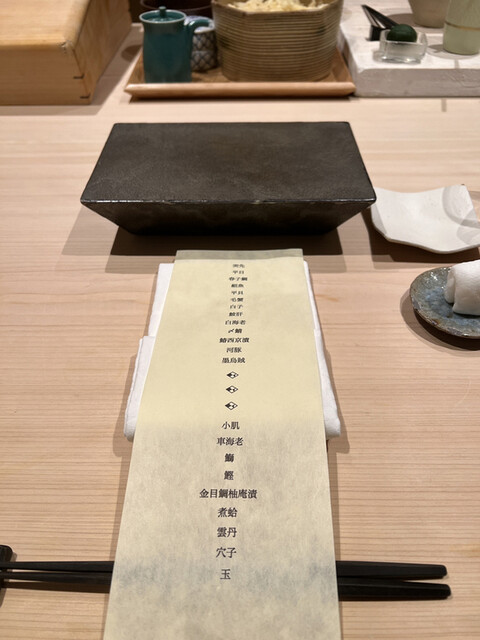 平目
春子鯛
鮟魚
平貝
毛蟹
白子
鮟肝
白海老
〆鯖
鰆西京漬
河豚
墨烏賊
小肌
車海老
鰤
鰹
金目鯛柚庵漬
煮蛤
雲丹
穴子
玉